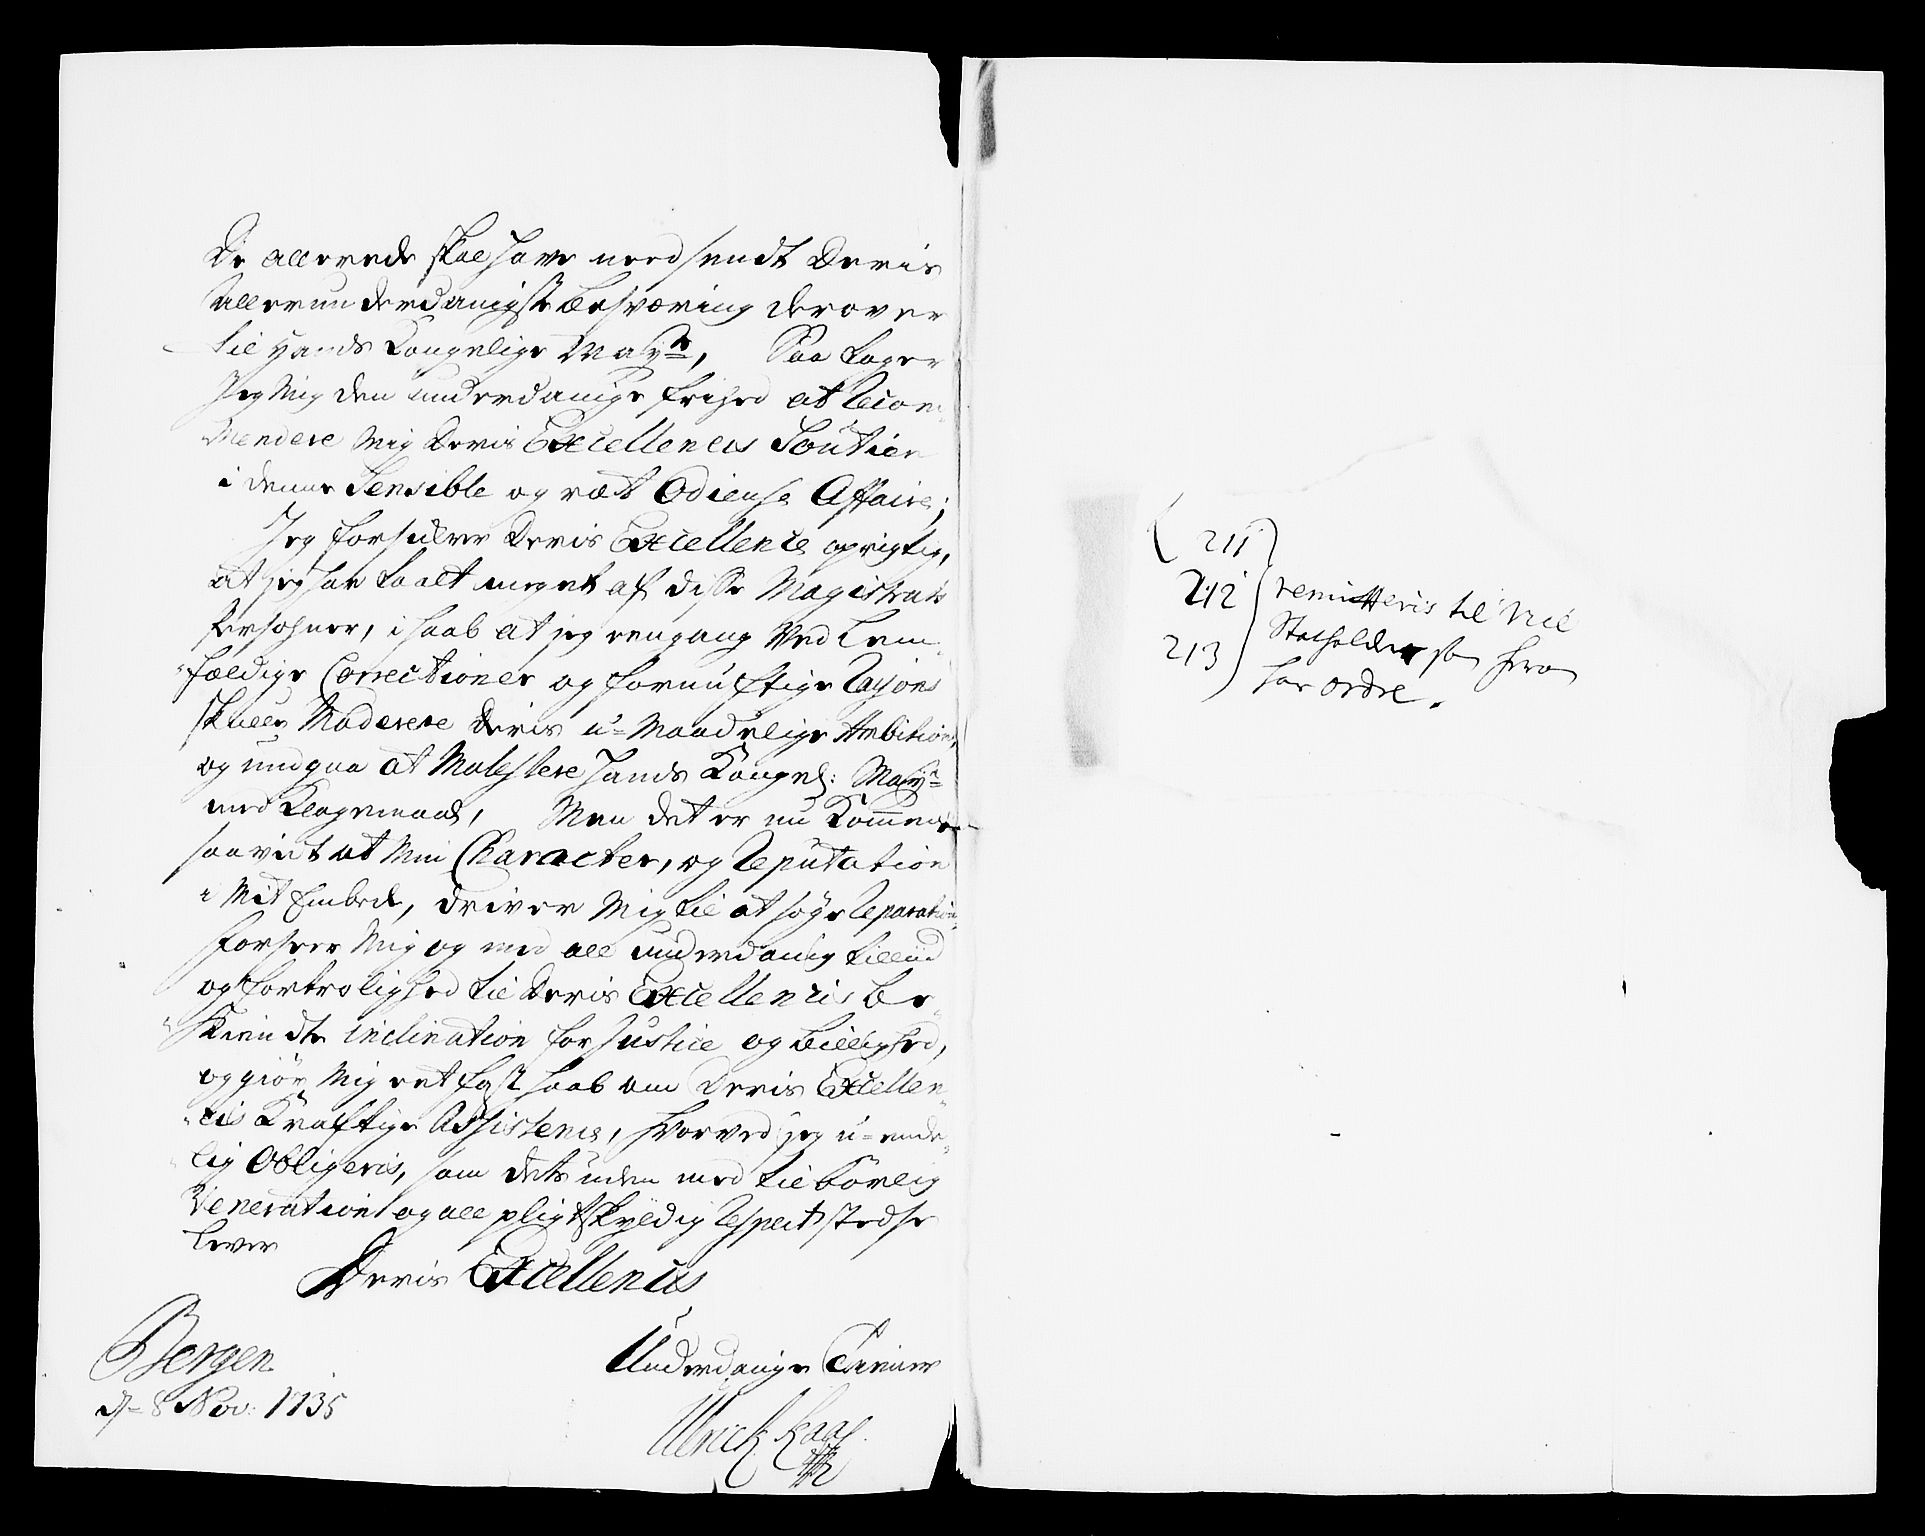 De allerede skal have needsendt Deris
Allerunderdanigste besværing derover
til Hands Kongelige May<sup>ts</sup>, Saa tager
Jeg Mig den underdanige frihed at Recom-
mendere Mig Deris Excellences Soutien
i denne Sensible og ræt Odieuse Affaire;
Jeg forsichrer Deris Excellence oprigtig,
at jeg har taalt meget af disse Magistrats
Persohner, i haab at jeg eengang Ved Lem-
fældige Correctioner og fornuftige Raisons
skulle Moderere deris u-Maadelige Ambition,
og undgaa at Molestere Hands Kongel: May<sup>ts</sup>
med Klagemaal, Men det er nu Kommen
saavit at Min Character, og Reputation
i Mit Embede, driver Mig til at søge Reparation,
Forseer Mig og med all underdanig tillid
og fortrolighed til Deris Excellencis be-
kiendte inclination for Justice og billighed,
og giør Mig ret fast haab om Deris Excellen-
cis Kraftige Assistence, hvorved jeg u-ende-
lig Obligeris, som dets uden med tilbørlig
Veneration og all pligtskyldig Respect stedse
lever
Deris Excellences
Bergen
d- 8 Nov: 1735
Underdanige Tiener
Ulrick Kaas
211
212 remitteris til Vice
213 Statholder som herom
har ordre.